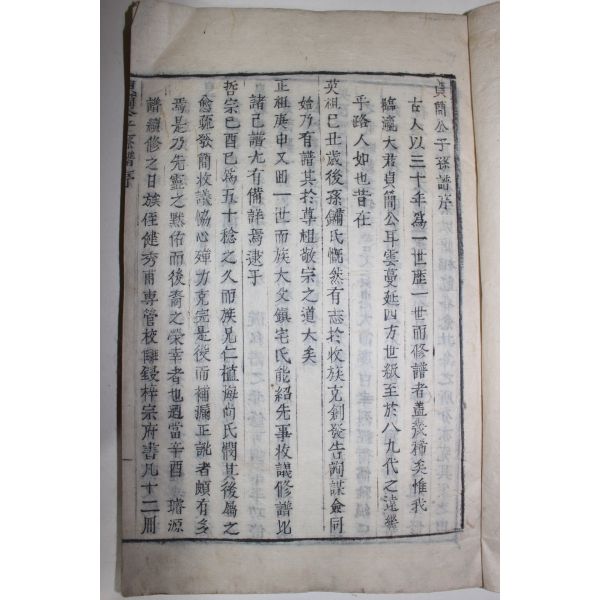 貞簡公子孫譜序
古人以三十年爲一世歷一世而修譜者蓋幾稀矣惟我
臨瀛大君貞簡公耳雲蔓延四方世級至於八九代之遠幾
乎路人如也昔在
英祖己丑歲後孫鏽氏慨然有志於收族克創發告詢謀僉同
始乃有譜其於尊祖敬宗之道大矣
正祖庚申又困一世而族大父鎭宅氏能紹先事收議修譜比
諸己譜尤有備詳焉逮于
哲宗己酉已爲五十稔之久而族兄仁植海尚氏憫其後屬之
愈疏發簡收議協心殫力克完是役而補漏正訛者頗有多
焉是乃先靈之黙佑而後裔之榮幸者也迺當辛酉 璿源
譜續修之日族侄健秀甫專管校讎鋟梓宗府書凡十二冊